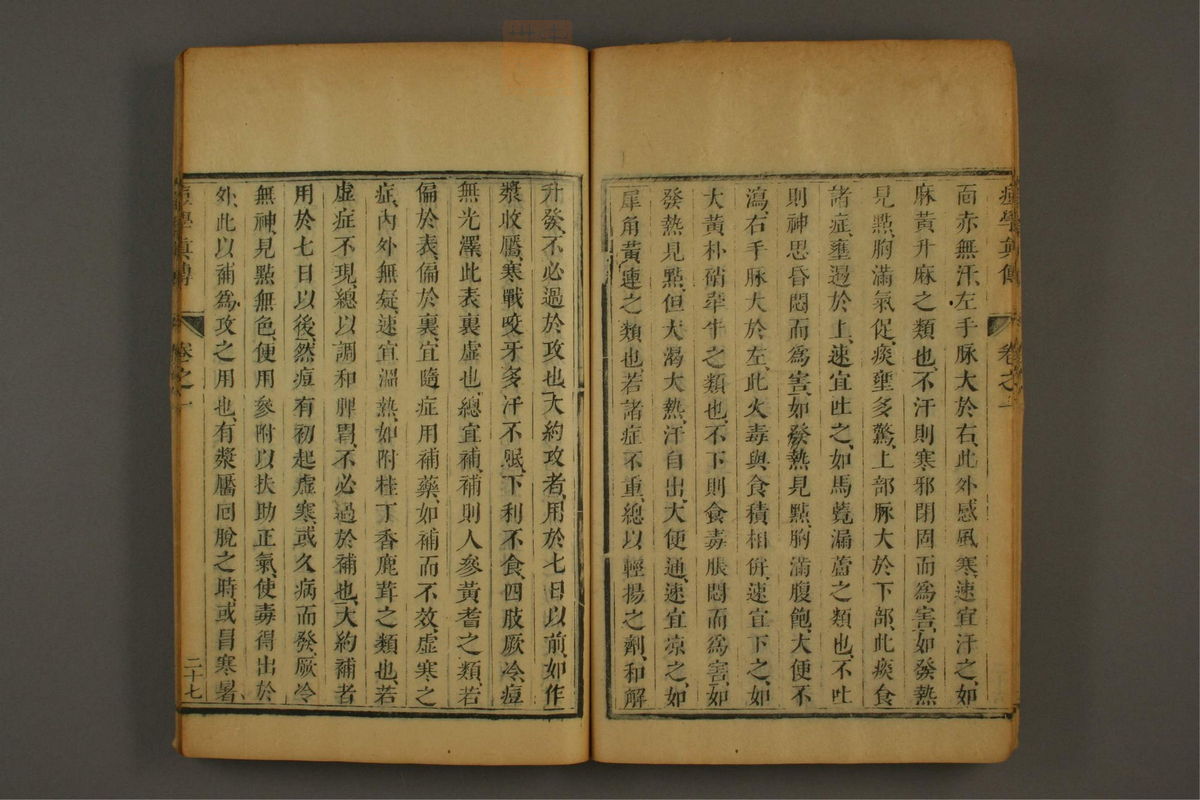 痘學眞傳 卷之一
面赤無汗、左手脉大於右、此外感風寒、速宜汗之、如
麻黃升麻之類也、不汗則寒邪閉固而爲害、如發熱
見點、胸滿氣促、痰壅多驚、上部脉大於下部、此痰食
諸症、壅遏於上、速宜吐之、如馬蔸漏蘆之類也、不吐
則神思昏悶而爲害、如發熱見點、胸滿腹飽、大便不
瀉、右手脉大於左、此火毒與食積相倂、速宜下之、如
大黃朴硝牽牛之類也、不下則食毒脹悶而爲害、如
發熱見點、但大渴大熱、汗自出、大便通、速宜凉之、如
犀角黃連之類也、若諸症不重、總以輕揚之劑、和解
升發、不必過於攻也、大約攻者、用於七日以前、如作
漿收靨、寒戰咬牙、多汗不眠、下利不食、四肢厥冷、痘
無光澤、此表裏虛也、總宜補、補則人參黃耆之類、若
偏於表、偏於裏、宜隨症用補藥、如補而不效、虛寒之
症、內外無疑、速宜溫熱、如附桂丁香鹿茸之類也、若
虛症不現、總以調和脾胃、不必過於補也、大約補者
用於七日以後、然痘有初起虛寒、或久病而發、厥冷
無神、見點無色、便用參附以扶助正氣、使毒得出於
外、此以補爲攻之用也、有漿靨囘脫之時、或冒寒暑
痘學眞傳 卷之一 二十七